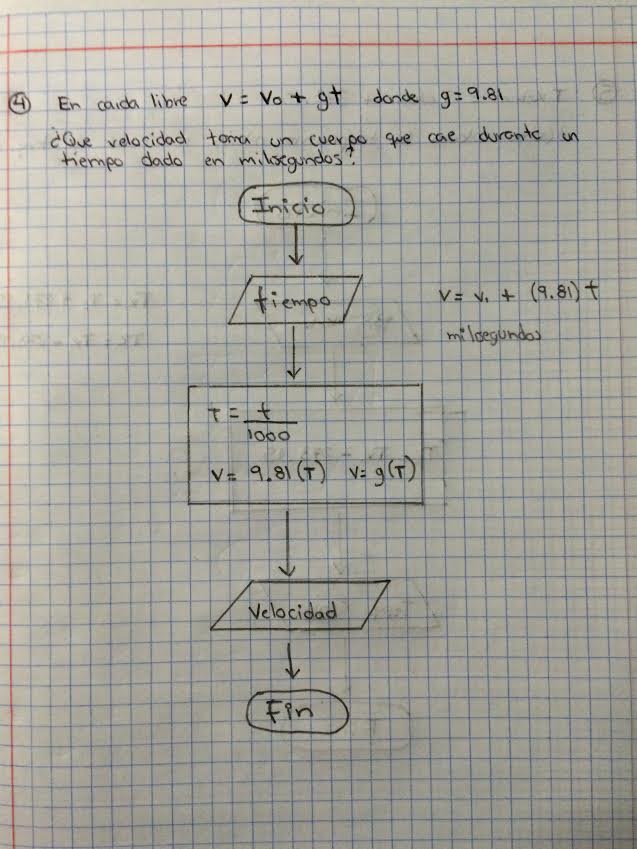 ④ En caida libre V = Vo + gt donde g = 9.81
¿Que velocidad toma un cuerpo que cae durante un
tiempo dado en milsegundos?
Inicio
tiempo
V = v. + (9.81) t
milsegundos
T = t
1000
V = 9.81 (T) V = g(T)
Velocidad
Fin